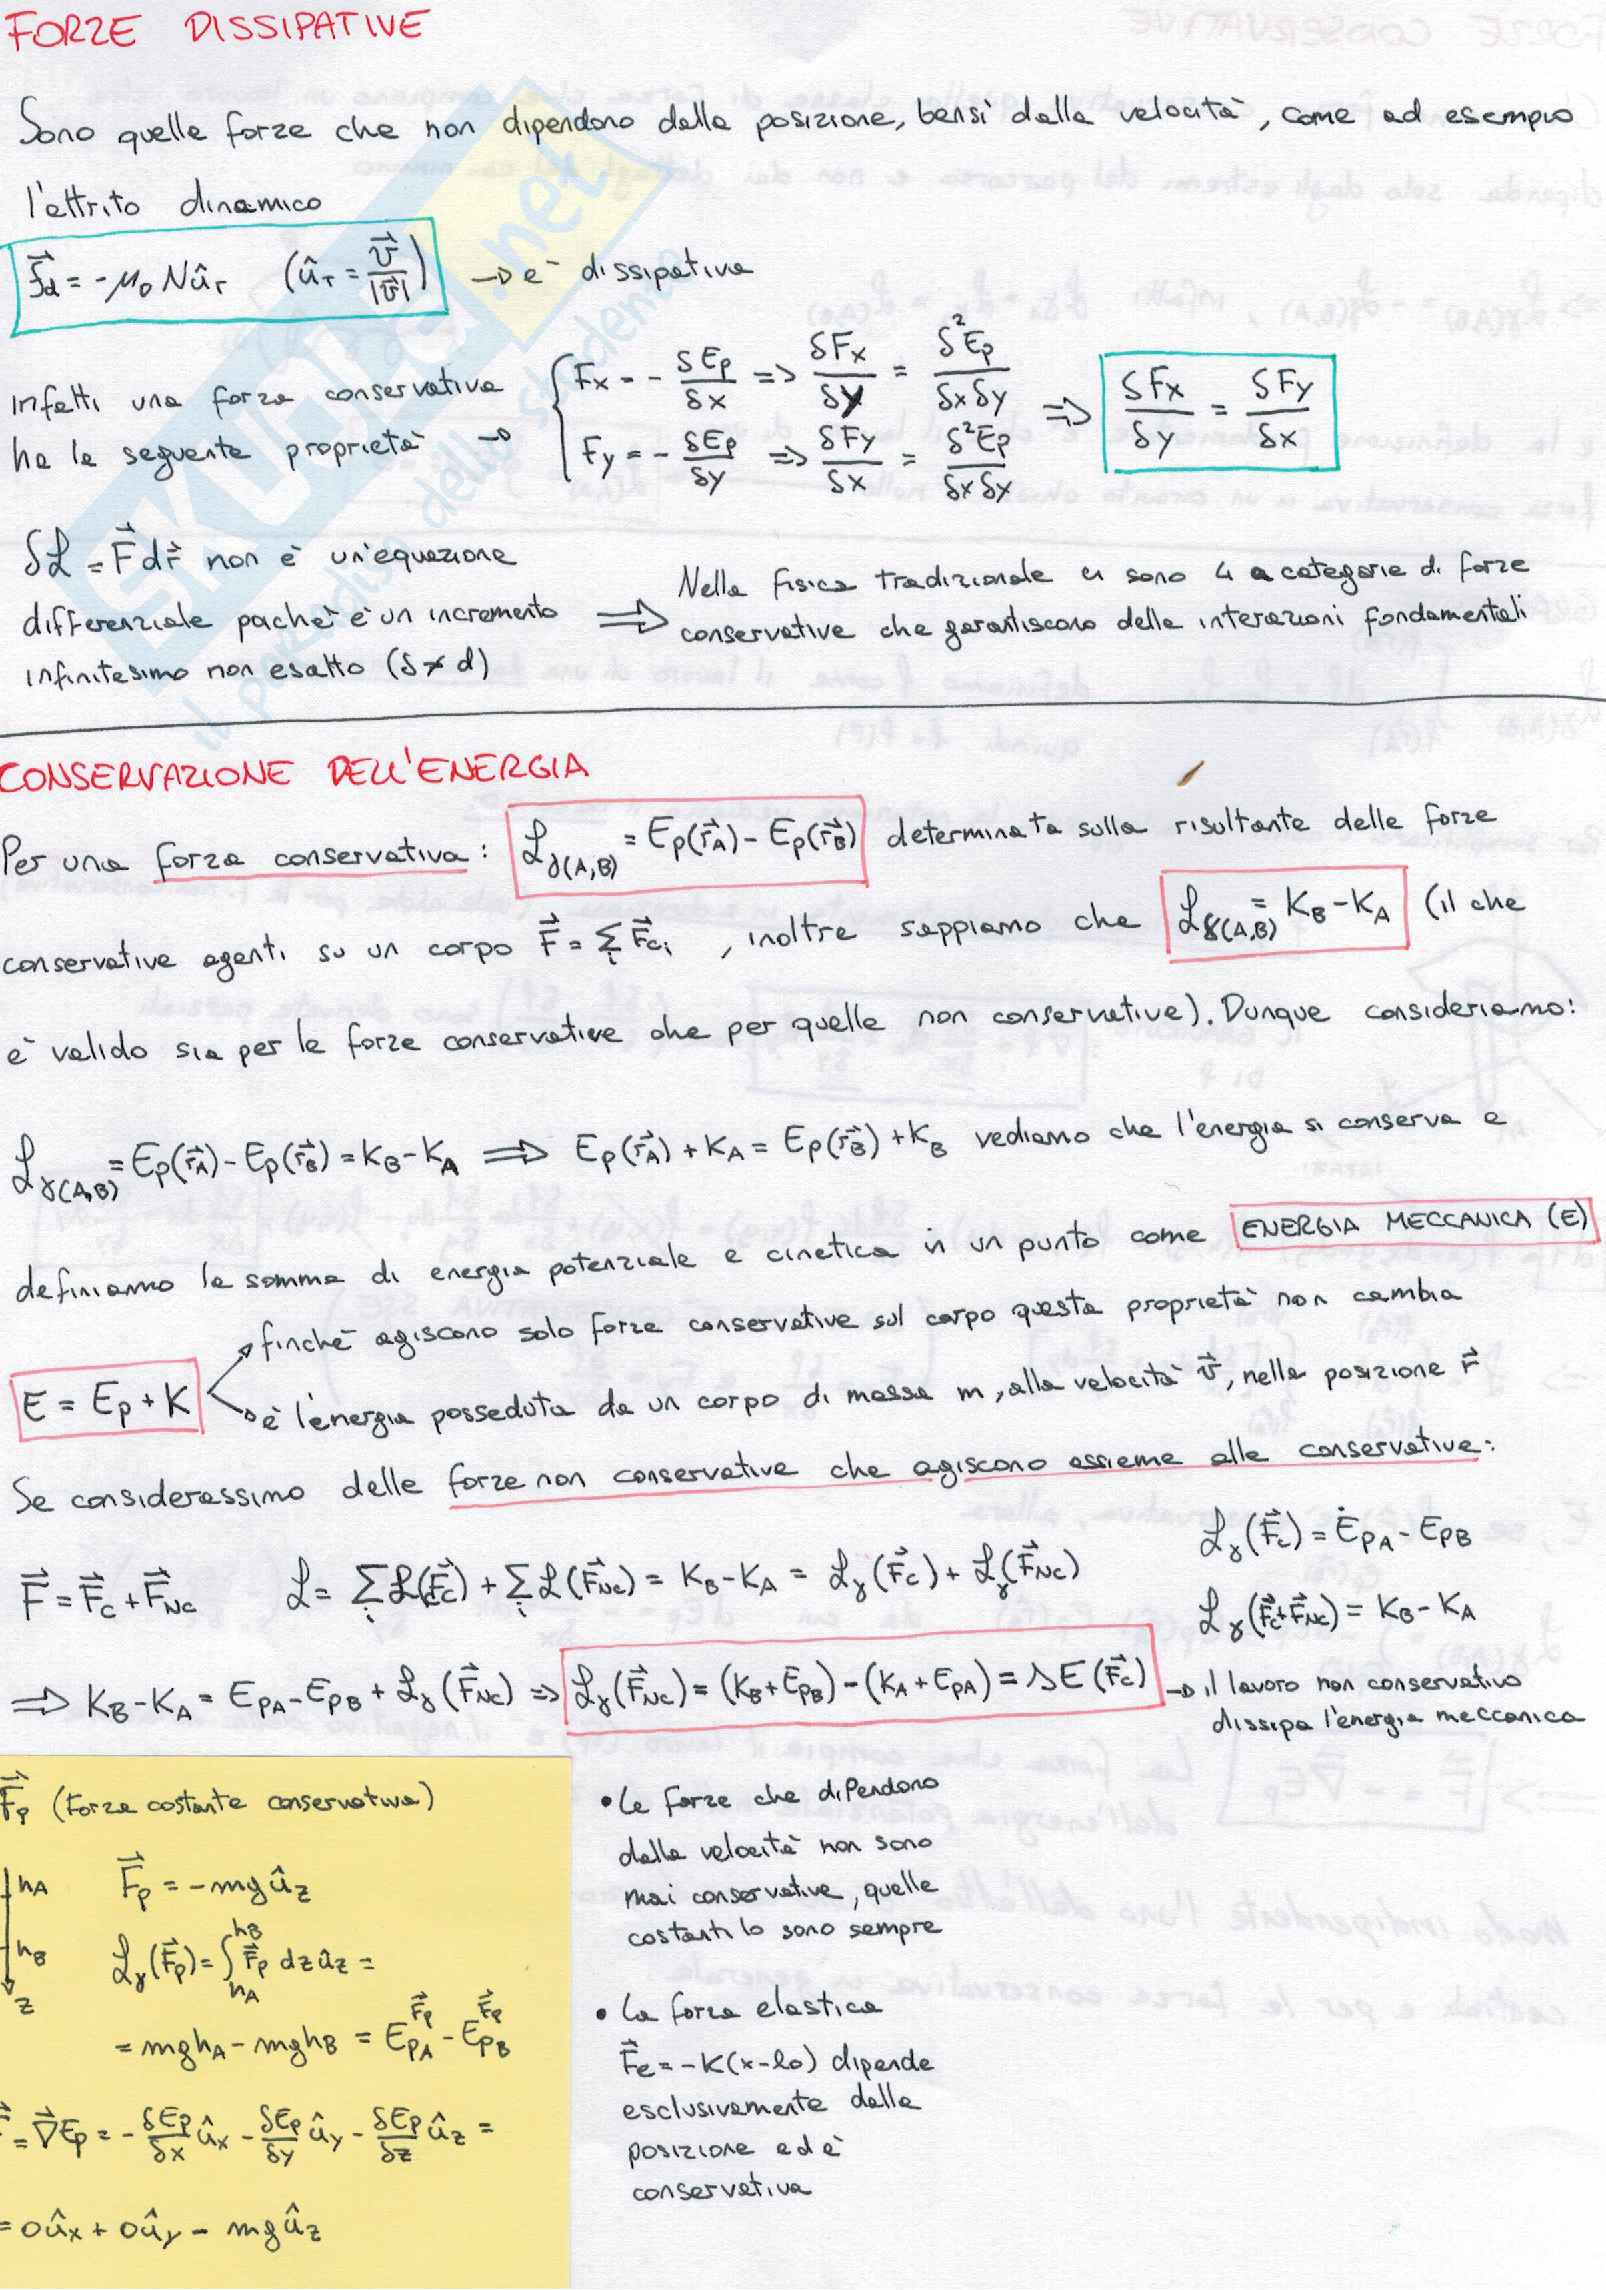 FORZE DISSIPATIVE
Sono quelle forze che non dipendono dalla posizione, bensì dalla velocità, come ad esempio
l'attrito dinamico
f⃗d = -μD N ûr (ûr = v⃗/|v⃗|) → è dissipativa
infatti una forza conservativa
ha la seguente proprietà →
Fx = - δEp/δx => δFx/δy = δ²Ep/δxδy
Fy = - δEp/δy => δFy/δx = δ²Ep/δxδy
=> δFx/δy = δFy/δx
δL = F⃗ dr⃗ non è un'equazione
differenziale poichè è un incremento
infinitesimo non esatto (δ ≠ d)
=> Nella fisica tradizionale ci sono 4 categorie di forze
conservative che garantiscono delle interazioni fondamentali
CONSERVAZIONE DELL'ENERGIA
Per una forza conservativa: Lγ(A,B) = Ep(r⃗A) - Ep(r⃗B) determinata sulla risultante delle forze
conservative agenti su un corpo F⃗ = Σi F⃗ci, inoltre sappiamo che Lγ(A,B) = KB - KA (il che
è valido sia per le forze conservative che per quelle non conservative). Dunque consideriamo:
Lγ(A,B) = Ep(r⃗A) - Ep(r⃗B) = KB - KA => Ep(r⃗A) + KA = Ep(r⃗B) + KB vediamo che l'energia si conserva e
definiamo la somma di energia potenziale e cinetica in un punto come ENERGIA MECCANICA (E)
finchè agiscono solo forze conservative sul corpo questa proprietà non cambia
E = Ep + K
è l'energia posseduta da un corpo di massa m, alla velocità v⃗, nella posizione r⃗
Se considerassimo delle forze non conservative che agiscono assieme alle conservative:
F⃗ = F⃗c + F⃗Nc L = Σi L(F⃗c) + Σi L(F⃗Nc) = KB - KA = Lγ(F⃗c) + Lγ(F⃗Nc)
Lγ(F⃗c) = EpA - EpB
Lγ(F⃗c+F⃗Nc) = KB - KA
=> KB - KA = EpA - EpB + Lγ(F⃗Nc) => Lγ(F⃗Nc) = (KB + EpB) - (KA + EpA) = ΔE (F⃗c) → il lavoro non conservativo
dissipa l'energia meccanica
F⃗p (Forza costante conservativa)
hA
hB
z
F⃗p = -mg ûz
Lγ(F⃗p) = ∫hA hB F⃗p dz ûz =
= mghA - mghB = EpA F⃗p - EpB F⃗p
F⃗ = ∇⃗Ep = - δEp/δx ûx - δEp/δy ûy - δEp/δz ûz =
= 0ûx + 0ûy - mgûz
• Le forze che dipendono
dalla velocità non sono
mai conservative, quelle
costanti lo sono sempre
• La forza elastica
F⃗e = -K(x-l0) dipende
esclusivamente dalla
posizione ed è
conservativa
SKUOLA.net
il paradiso dello studente